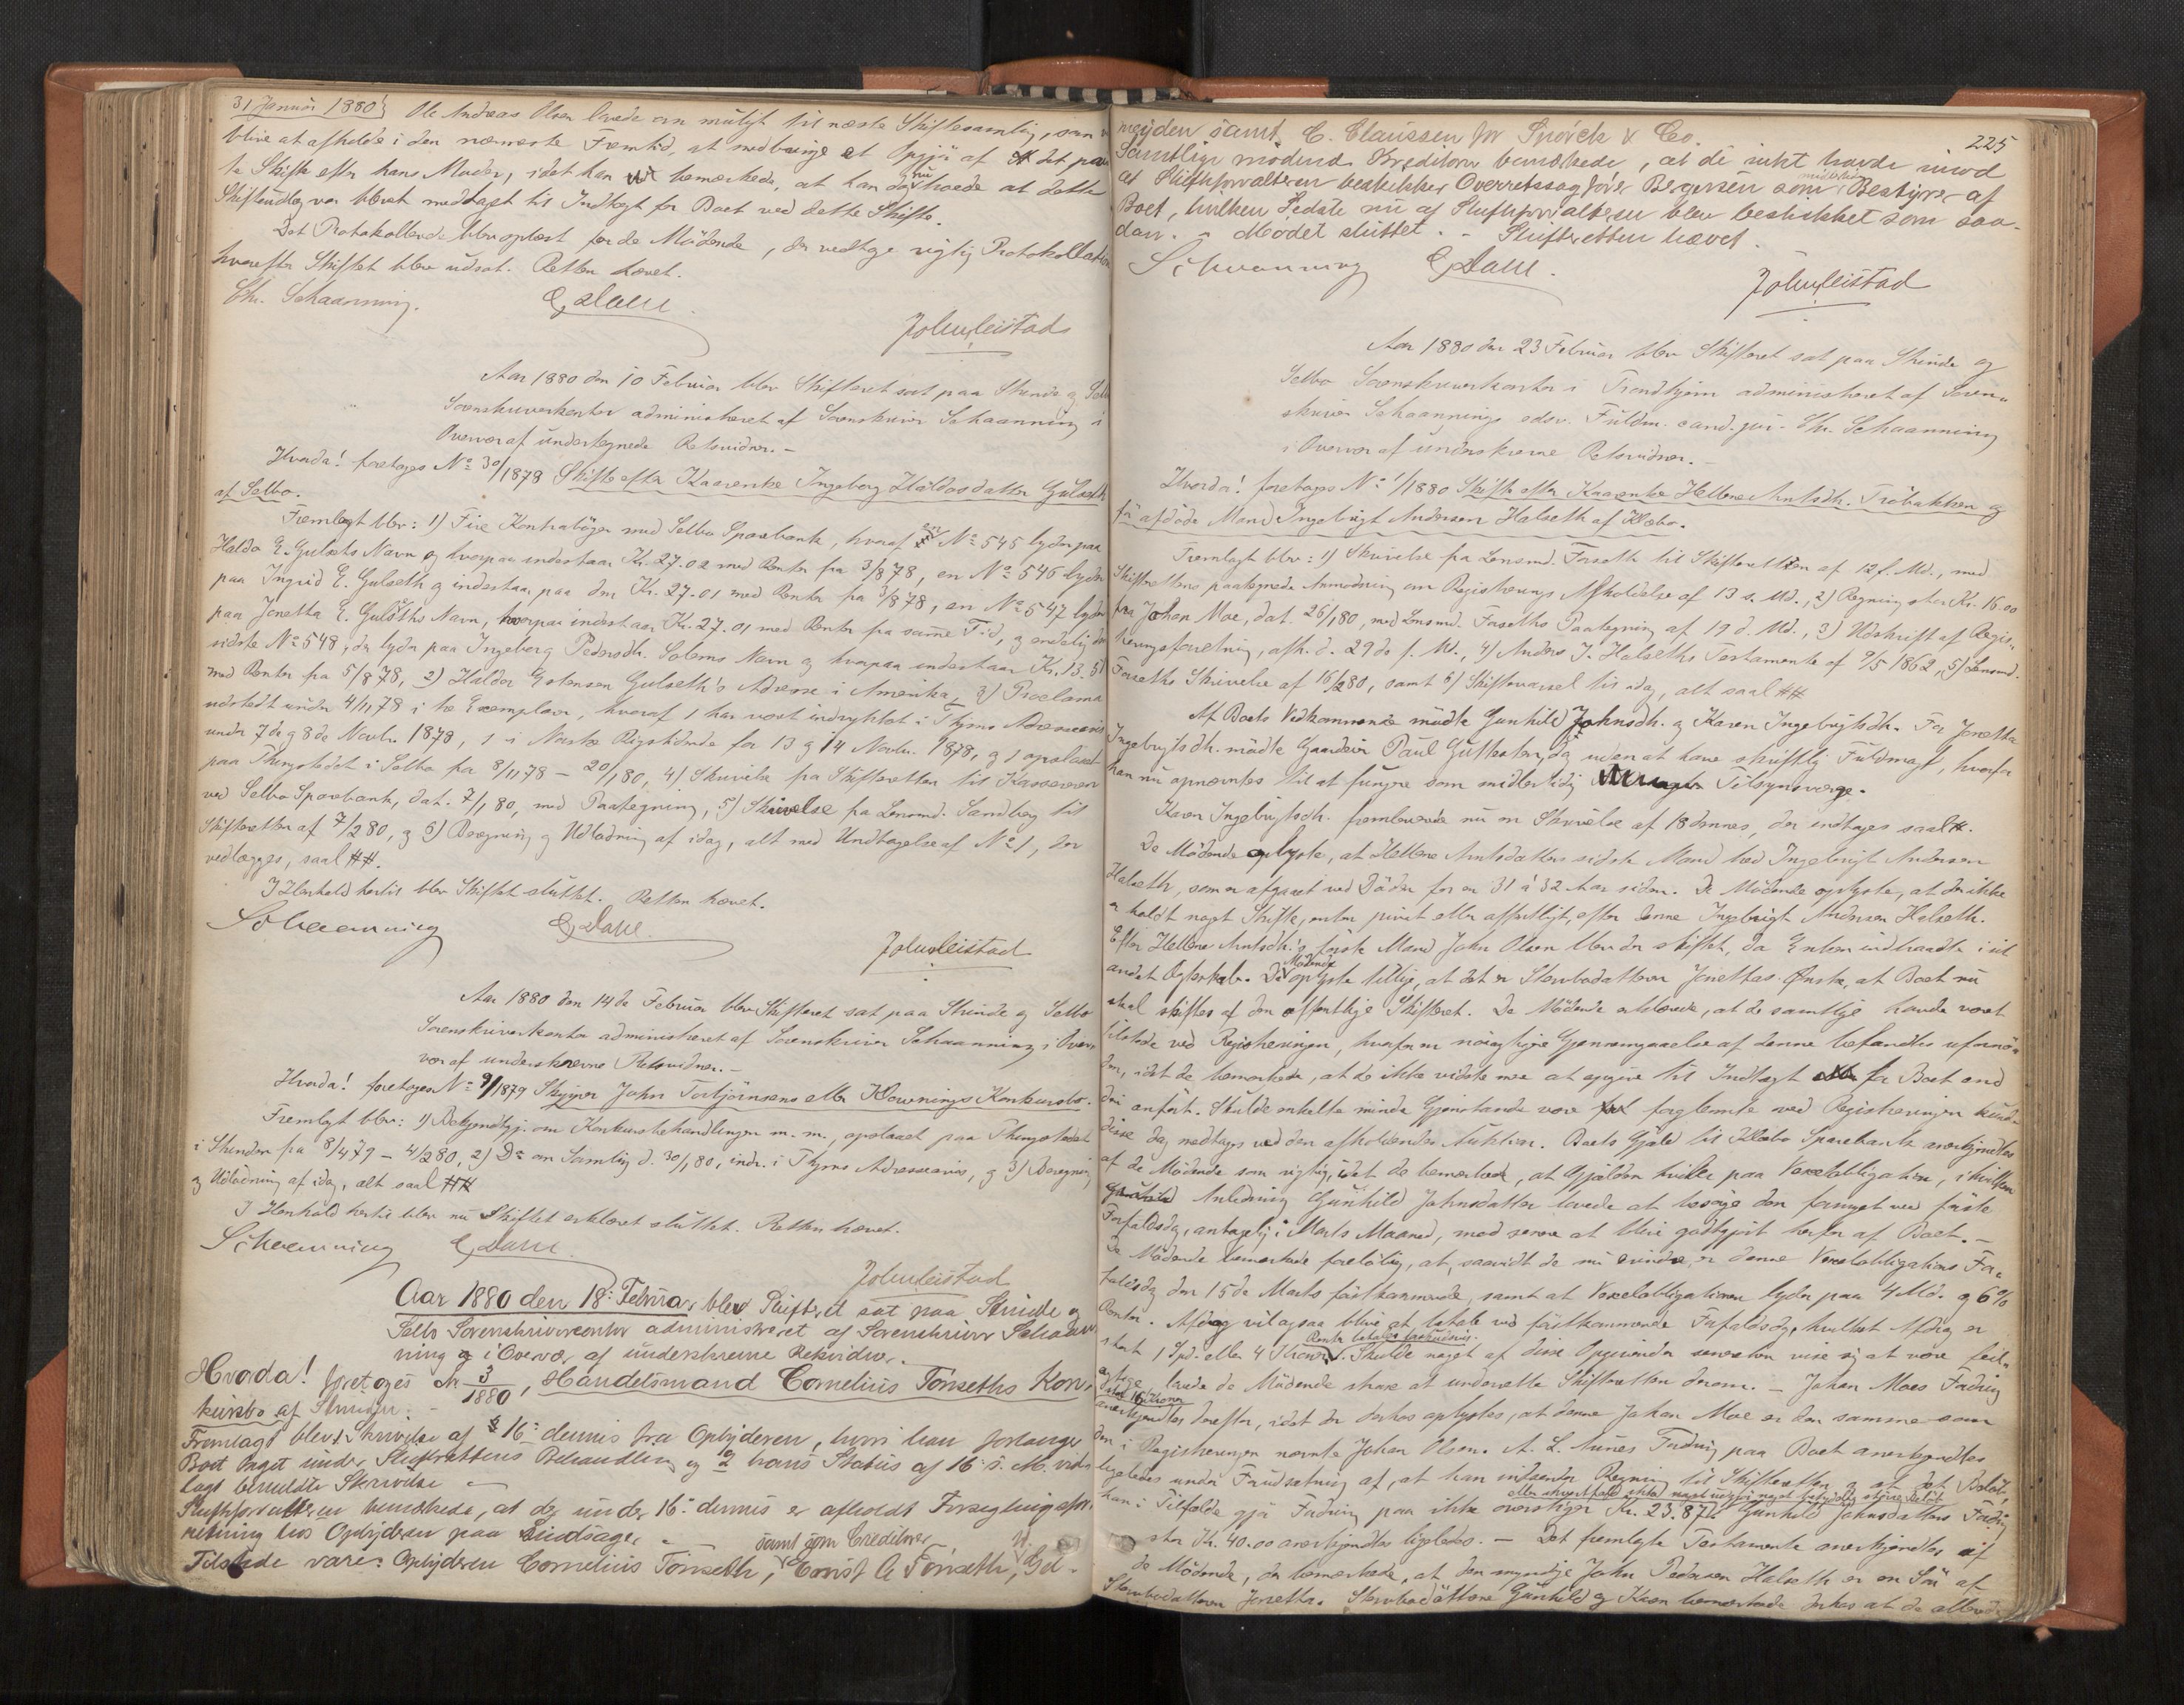 31 Januar 1880.
Ole Andreas Olsen lovede om muligt til næste Skiftesamling, som
blive at afholde i den nærmeste Fremtid, at medbringe et Opgjør af det
Skifte efter hans Moder, idet han bemærkede, at han da nu havde at dette
Skifteudlæg var blevet medtaget til Indtægt for Boet ved dette Skifte.
Det Protokollerede blev oplæst for de Mødende, der vedtoge rigtig Protokollation
hvorefter Skiftet blev udsat. Retten hævet.
Chr. Schaanning. E Dahl
John Leistad
Aar 1880 den 10 Februar blev Skifteret sat paa Strinde og Selbo
Sorenskriverkontor administreret af Sorenskriver Schaanning i
Overvær af undertegnede Retsvidner. –
Hvorda! foretoges No 30/1878 Skifte efter Kaarenke Ingeborg Haldosdatter Gulseth
af Selbo.
Fremlagt blev: 1) Fire Kontrabøger med Selbo Sparebank, hvoraf en No 545 lyder paa
Haldo E. Gulseths Navn og hvorpaa indestaar Kr. 27.02 med Renter fra 3/8 78, en No 546 lyder
paa Ingrid E. Gulseth og indestaar paa den Kr. 27.01 med Renter fra 3/8 78, en No 547 lyder
paa Jonetta E. Gulseths Navn, hvorpaa indestaar Kr. 27.01 med Renter fra samme Tid, og endelig den
sidste No 548, der lyder paa Ingeborg Pedersdtr. Solems Navn og hvorpaa indestaar Kr. 13.51
med Renter fra 5/8 78, 2) Haldor Estensen Gulseth's Adresse i Amerika, 3) Proclama
udstedt under 4/11 78 i to Exemplarer, hvoraf 1 har været indrykket i Thjms Adresseavis
under 7de og 8de Novbr. 1878, 1 i Norske Rigstidende for 13 og 14 Novbr. 1878, og 1 opslaaet
paa Thingstedet i Selbo fra 8/11 78 – 20/1 80, 4) Skrivelse fra Skifteretten til Kassereren
ved Selbo Sparebank, dat. 7/1 80, med Paategning, 5) Skrivelse fra Lensmd. Sandberg til
Skifteretten af 7/2 80, og 6) Beregning og Udlodning af idag, alt med Undtagelse af No 1, der
vedlægges, saal. ##.
I Henhold hertil blev Skiftet sluttet. Retten hævet.
Schaanning E Dahl.
John Leistad
Aar 1880 den 14de Februar blev Skifteret sat paa Strinde og Selbo
Sorenskriverkontor administreret af Sorenskriver Schaanning i Over-
vær af underskrevne Retsvidner. –
Hvorda! foretoges No 9/1879 Skipper John Torbjørnsens eller Kl Konkursbo.
Fremlagt blev: 1) Bekjendtgj. om Konkursbehandlingen m. m., opslaaet paa Thingstedet
i Strinden fra 8/4 79 – 4/2 80, 2) Do om Samling d. 30/1 80, indr. i Thjms Adresseavis, og 3) Beregning
og Udlodning af idag, alt saal. ##
I Henhold hertil blev nu Skiftet erklæret sluttet. Retten hævet.
Schaanning E Dahl
John Leistad
Aar 1880 den 18: Februar blev Skifteret sat paa Strinde og
Selbo Sorenskrivercontor administreret af Sorenskriver Schaan-
ning og i Overvær af underskrevne Retsvidner. –
Hvorda! foretoges No 3/1880, Handelsmand Cornelius Tønseths Kon-
kursbo af Strinden. –
Fremlagt blev 1 Skrivelse af 16: dennes fra Opbyderen, hvori han forlanger
Boet taget under Skifterettens Behandling og 2 hans Status af 16 d. M. ved-
lagt bemeldte Skrivelse –
Skifteforvalteren bemærkede, at der under 16: dennes er afholdt Forseglingsfor-
retning hos Opbyderen paa –
Tilstede vare: Opbyderen Cornelius Tønseth, samt som Creditorer Ernst A Tønseth, N. Gel-
225
meyden samt C. Claussen for Spørck & Co.
Samtlige mødende Kreditorer bemærkede, at de intet havde imod
at Skifteforvalteren beskikker Overretssagfører Bergersen som midlertidig Bestyrer af
Boet, hvilken Sidste nu af Skifteforvalteren blev beskikket som saa-
dan. – Mødet sluttet. – Skifteretten hævet.
Schaanning E Dahl.
John Leistad
Aar 1880 den 23 Februar blev Skifteret sat paa Strinde og
Selbo Sorenskriverkontor i Trondhjem administreret af Soren-
skriver Schaannings edsv. Fuldm. cand. jur. Chr. Schaanning
i Overvær af underskrevne Retsvidner. –
Hvorda! foretoges No 1/1880 Skifte efter Kaarenke Hellene Arntsdtr. Trøbakken og
før afdøde Mand Ingebrigt Andersen Halseth af Klæbo.
Fremlagt blev: 1) Skrivelse fra Lensmd. Forseth til Skifteretten af 12 f. Md., med
Skifterettens paategnede Anmodning om Registrerings Afholdelse af 13 s. Md., 2) Regning stor Kr. 16.00
fra Johan Moe, dat. 26/1 80, med Lensmd. Forseths Paategning af 19 d. Md., 3) Udskrift af Regis-
treringsforretning, afh. d. 29de f. Md., 4) Anders J. Halseths Testamente af 9/5 1862, 5) Lensmd.
Forseths Skrivelse af 16/2 80, samt 6) Skiftevarsel til idag, alt saal. ##
Af Boets Vedkommende mødte Gunhild Johnsdtr. og Karen Ingebrigtsdtr. For Jonetta
Ingebrigtsdtr. mødte Gaardbr. Paul Gutteseten, dog uden at have skriftlig Fuldmagt, hvorfor
han nu opnævntes til at fungere som midlertidig Tilsynsværge.
Karen Ingebrigtsdtr. fremleverede nu en Skrivelse af 18 dennes, der indtages saal. #.
De Mødende oplyste, at Hellene Arntsdatters sidste Mand hed Ingebrigt Andersen
Halseth, som er afgaaet ved Døden for en 31 á 32 Aar siden. De Mødende oplyste, at der ikke
er holdt noget Skifte, enten privat eller offentligt, efter denne Ingebrigt Andersen Halseth.
Efter Hellene Arntsdtr.'s første Mand John Olsen blev der skiftet, da Enken indtraadte i sit
andet Ægteskab. De Mødende oplyste tillige, at det er Stervbodatteren Jonettas Ønske, at Boet nu
skal skiftes af den offentlige Skifteret. De Mødende erklærede, at de samtlige havde været
tilstede ved Registreringen, hvorfor en nøiagtigere Gjennemgaaelse af denne befandtes ufornø-
den, idet de bemærkede, at de ikke vidste mere at opgive til Indtægt for Boet end
deri anført. Skulde enkelte mindre Gjenstande være forglemte ved Registreringen kunde
disse dog medtages ved den afholdendes Auktion. Boets Gjæld til Klæbo Sparebank anerkjendtes
af de Mødende som rigtig, idet de bemærkede, at Gjælden hviler paa Vexelobligation, i hvilken
Anledning Gunhild Johnsdatter lovede at besørge den fornyet ved første
Forfaldsdag, antagelig i Marts Maaned, mod senere at blive godtgjort herfor af Boet. –
De Mødende bemærkede foreløbig, at, saavidt de nu erindre, er denne Vexelobligations For-
faldsdag den 15de Marts førstkommende, samt at Vexelobligationen lyder paa 4 Md. og 6%
Renter. Afdrag vil ogsaa blive at betale ved førstkommende Forfaldsdag, hvilket Afdrag er
stort 1 Spd. eller 4 Kroner. Renter betales forskudsvis. Skulde noget af disse Opgivender senere hen vise sig at være feil-
agtige, lovede de Mødende strax at underrette Skifteretten derom. – Johan Moes Fordring
stor 16 Kroner
anerkjendtes derefter, idet der derhos oplystes, at denne Johan Moe er den samme som
den i Registreringen nævnte Johan Olsen. A. L. Aunes Fordring paa Boet anerkjendtes
ligeledes under Forudsætning af, at han indsender Regning til Skifteretten og at det Beløb,
han i Tilfælde gjør Fordring paa ikke overstiger Kr. 23.87, eller ikke noget betydelig større Beløb. Gunhild Johnsdatters Fordring
stor Kr. 40.00 anerkjendtes ligeledes. – Det fremlagte Testamente anerkjendtes af
de Mødende, der bemærkede, at den myndige John Pedersen Halseth er en Søn af
Stervbodatteren Jonetta. Stervbodøttrene Gunhild og Karen bemærkede derhos at de allerede